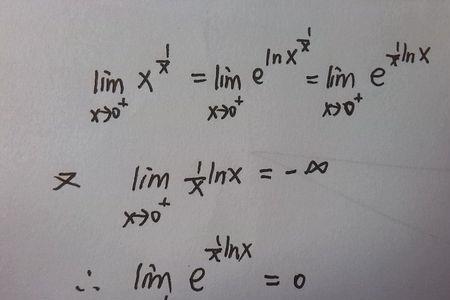 lim x→0⁺ x^(1/x) = lim x→0⁺ e^(ln x^(1/x)) = lim x→0⁺ e^(1/x ln x)
又 lim x→0⁺ 1/x ln x = -∞
∴ lim e^(1/x ln x) = 0